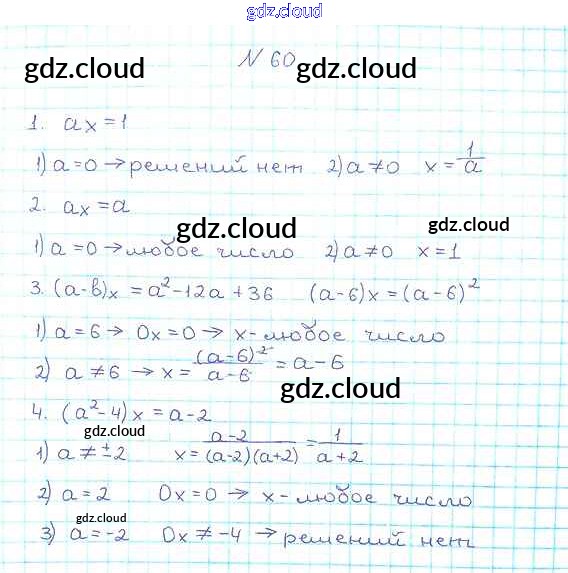 gdz.cloud
N 60
gdz.cloud gdz.cloud
1. ax = 1
1) a = 0 → решений нет 2) a ≠ 0 x = 1/a
2. ax = a
gdz.cloud gdz.cloud
1) a = 0 → любое число 2) a ≠ 0 x = 1
3. (a-б)x = a² - 12a + 36 (a-6)x = (a-6)²
1) a = 6 → 0x = 0 → x - любое число
2) a ≠ 6 → x = (a-6)²/a-6 = a - 6
gdz.cloud
4. (a² - 4)x = a - 2
gdz.cloud
1) a ≠ ±2 x = a-2/(a-2)(a+2) = 1/a+2
2) a = 2 0x = 0 → x - любое число
gdz.cloud
3) a = -2 0x ≠ -4 → решений нет